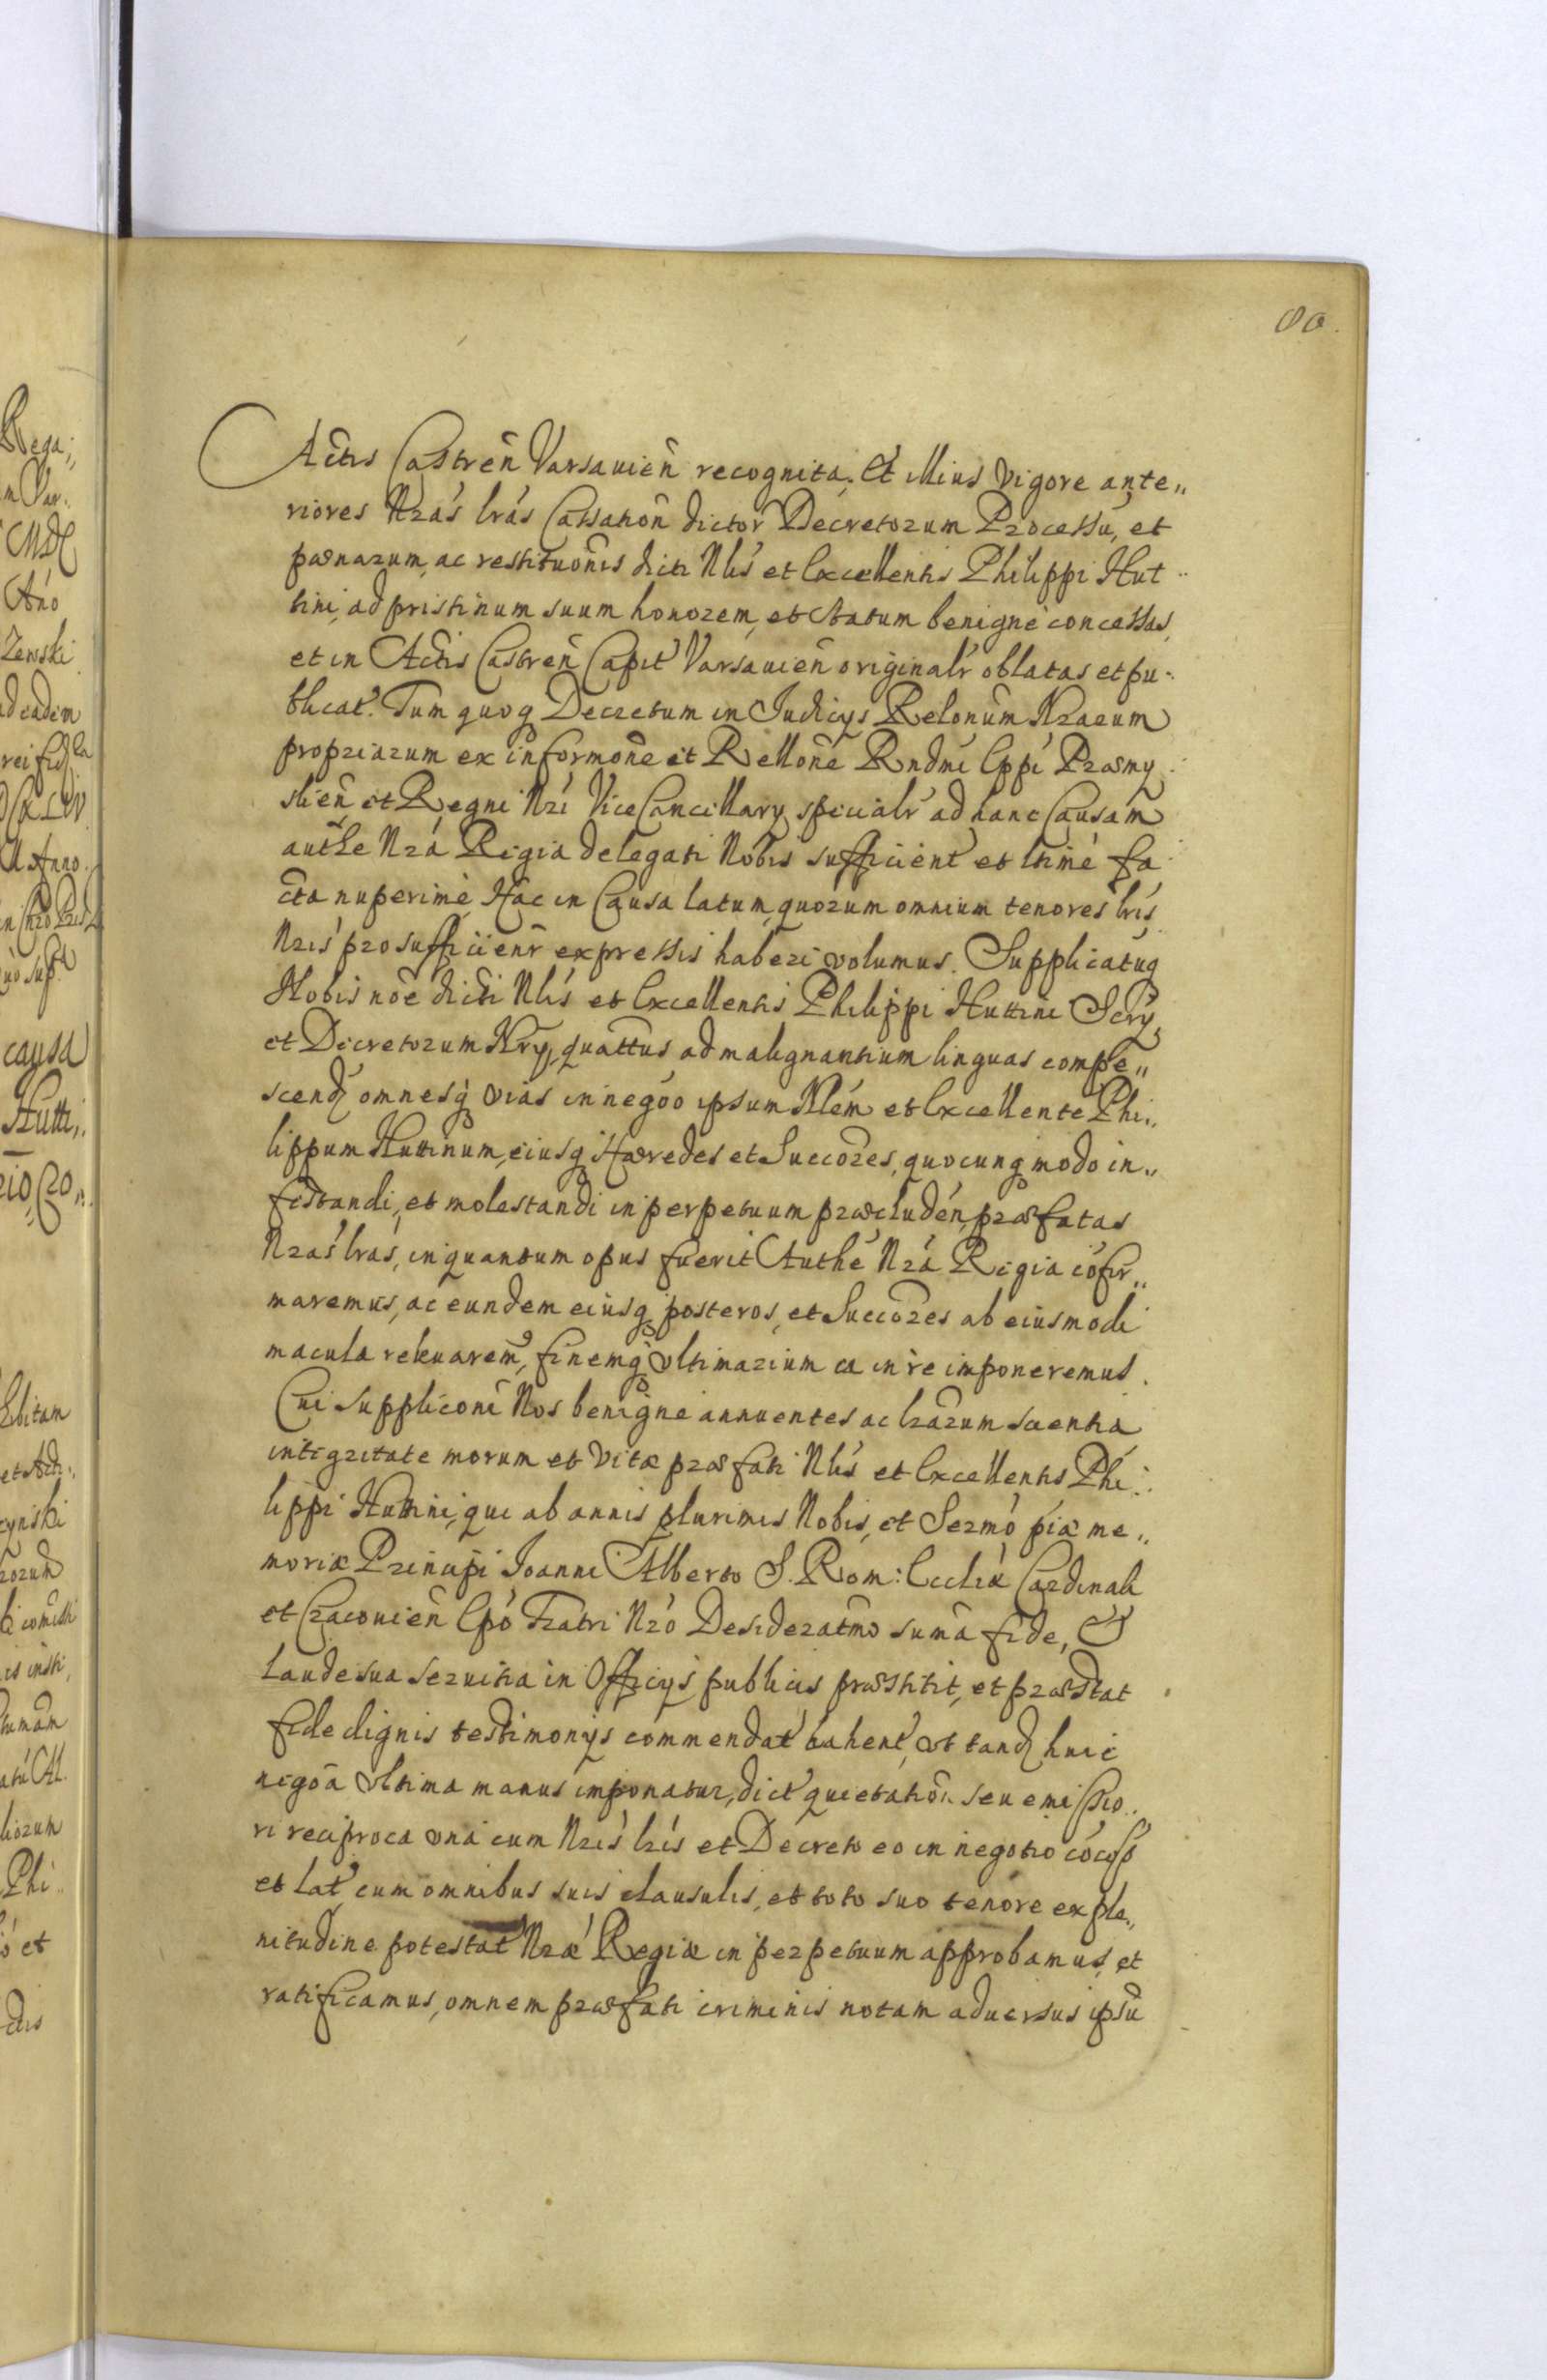 80.
Actis Castreñ Varsavieñ recognita, Et illius vigore ante„
riores Nrás lrás Cassatioñ dictor̃ Decretorum Processũ, et
pœnarum, ac restitutionis dicti Nlis et Excellentis Philippi Hut„
tini, ad pristinum suum honorem, et statum benigne concessas,
et in Actis Castreñ Capit̃ Varsavieñ originalr̃ oblatas et pu„
blicat̃. Tum quoq Decretum in Judicys Relonũm Nrarum
propriarum ex informone et Rellone Rndmi Eppi Præmy„
slieñ et Regni Nri ViceCancellary specialr̃ ad hanc Causam
authe Nrá Regia delegati Nobis sufficient̃ et ltimé fa„
cta nuperime, Hac in Causa latum, quorum omnium tenores lris
Nris pro sufficientr̃ expressis haberi volumus. Supplicatuq
Nobis noe dicti Nlis et Excellentis Philippi Huttini Scry
et Decretorum Nry, quattus ad malignantium linguas compe„
scend̃ omnesq vias in negoo ipsum Nlem et Excellente Phi„
lippum Huttinum, eiusq Hæredes et Succores, quocunq modo in„
festandi, et molestandi in perpetuum præcludeñ, præfatas
Nras lras, inquantum opus fuerit Authe Nrá Regia cofir„
maremus, ac eundem eiusq posteros, et Succores ab eiusmodi
macula relevarem, finemq ultimarium ea in re imponeremus.
Cui suppliconi Nos benigne annuentes ac lrarum scientia
integritate morum et vitæ præfati Nlis et Excellentis Phi„
lippi Huttini, qui ab annis plurimis Nobis, et Sermo piæ me„
moriæ Principi Joanni Alberto S. Rom: Eccliæ Cardinali
et Cracovieñ Epo Fratri Nro Desideratmo suma fide, Et
Laude sua servitia in Officys publicis præstitit, et præstat
fide dignis testimonys commendat̃ hahent̃, ut tand huic
negoa ultima manus imponatur, dict̃ quietatioñ seu emissio„
ri reciproca una cum Nris lris et Decreto eo in negotio cocess
et lat̃ cum omnibus suis clausulis, et toto suo tenore ex ple„
nitudine potestat̃ Nræ Regiæ in perpetuum approbamus, et
ratificamus, omnem præfati criminis notam adversus ipsũ